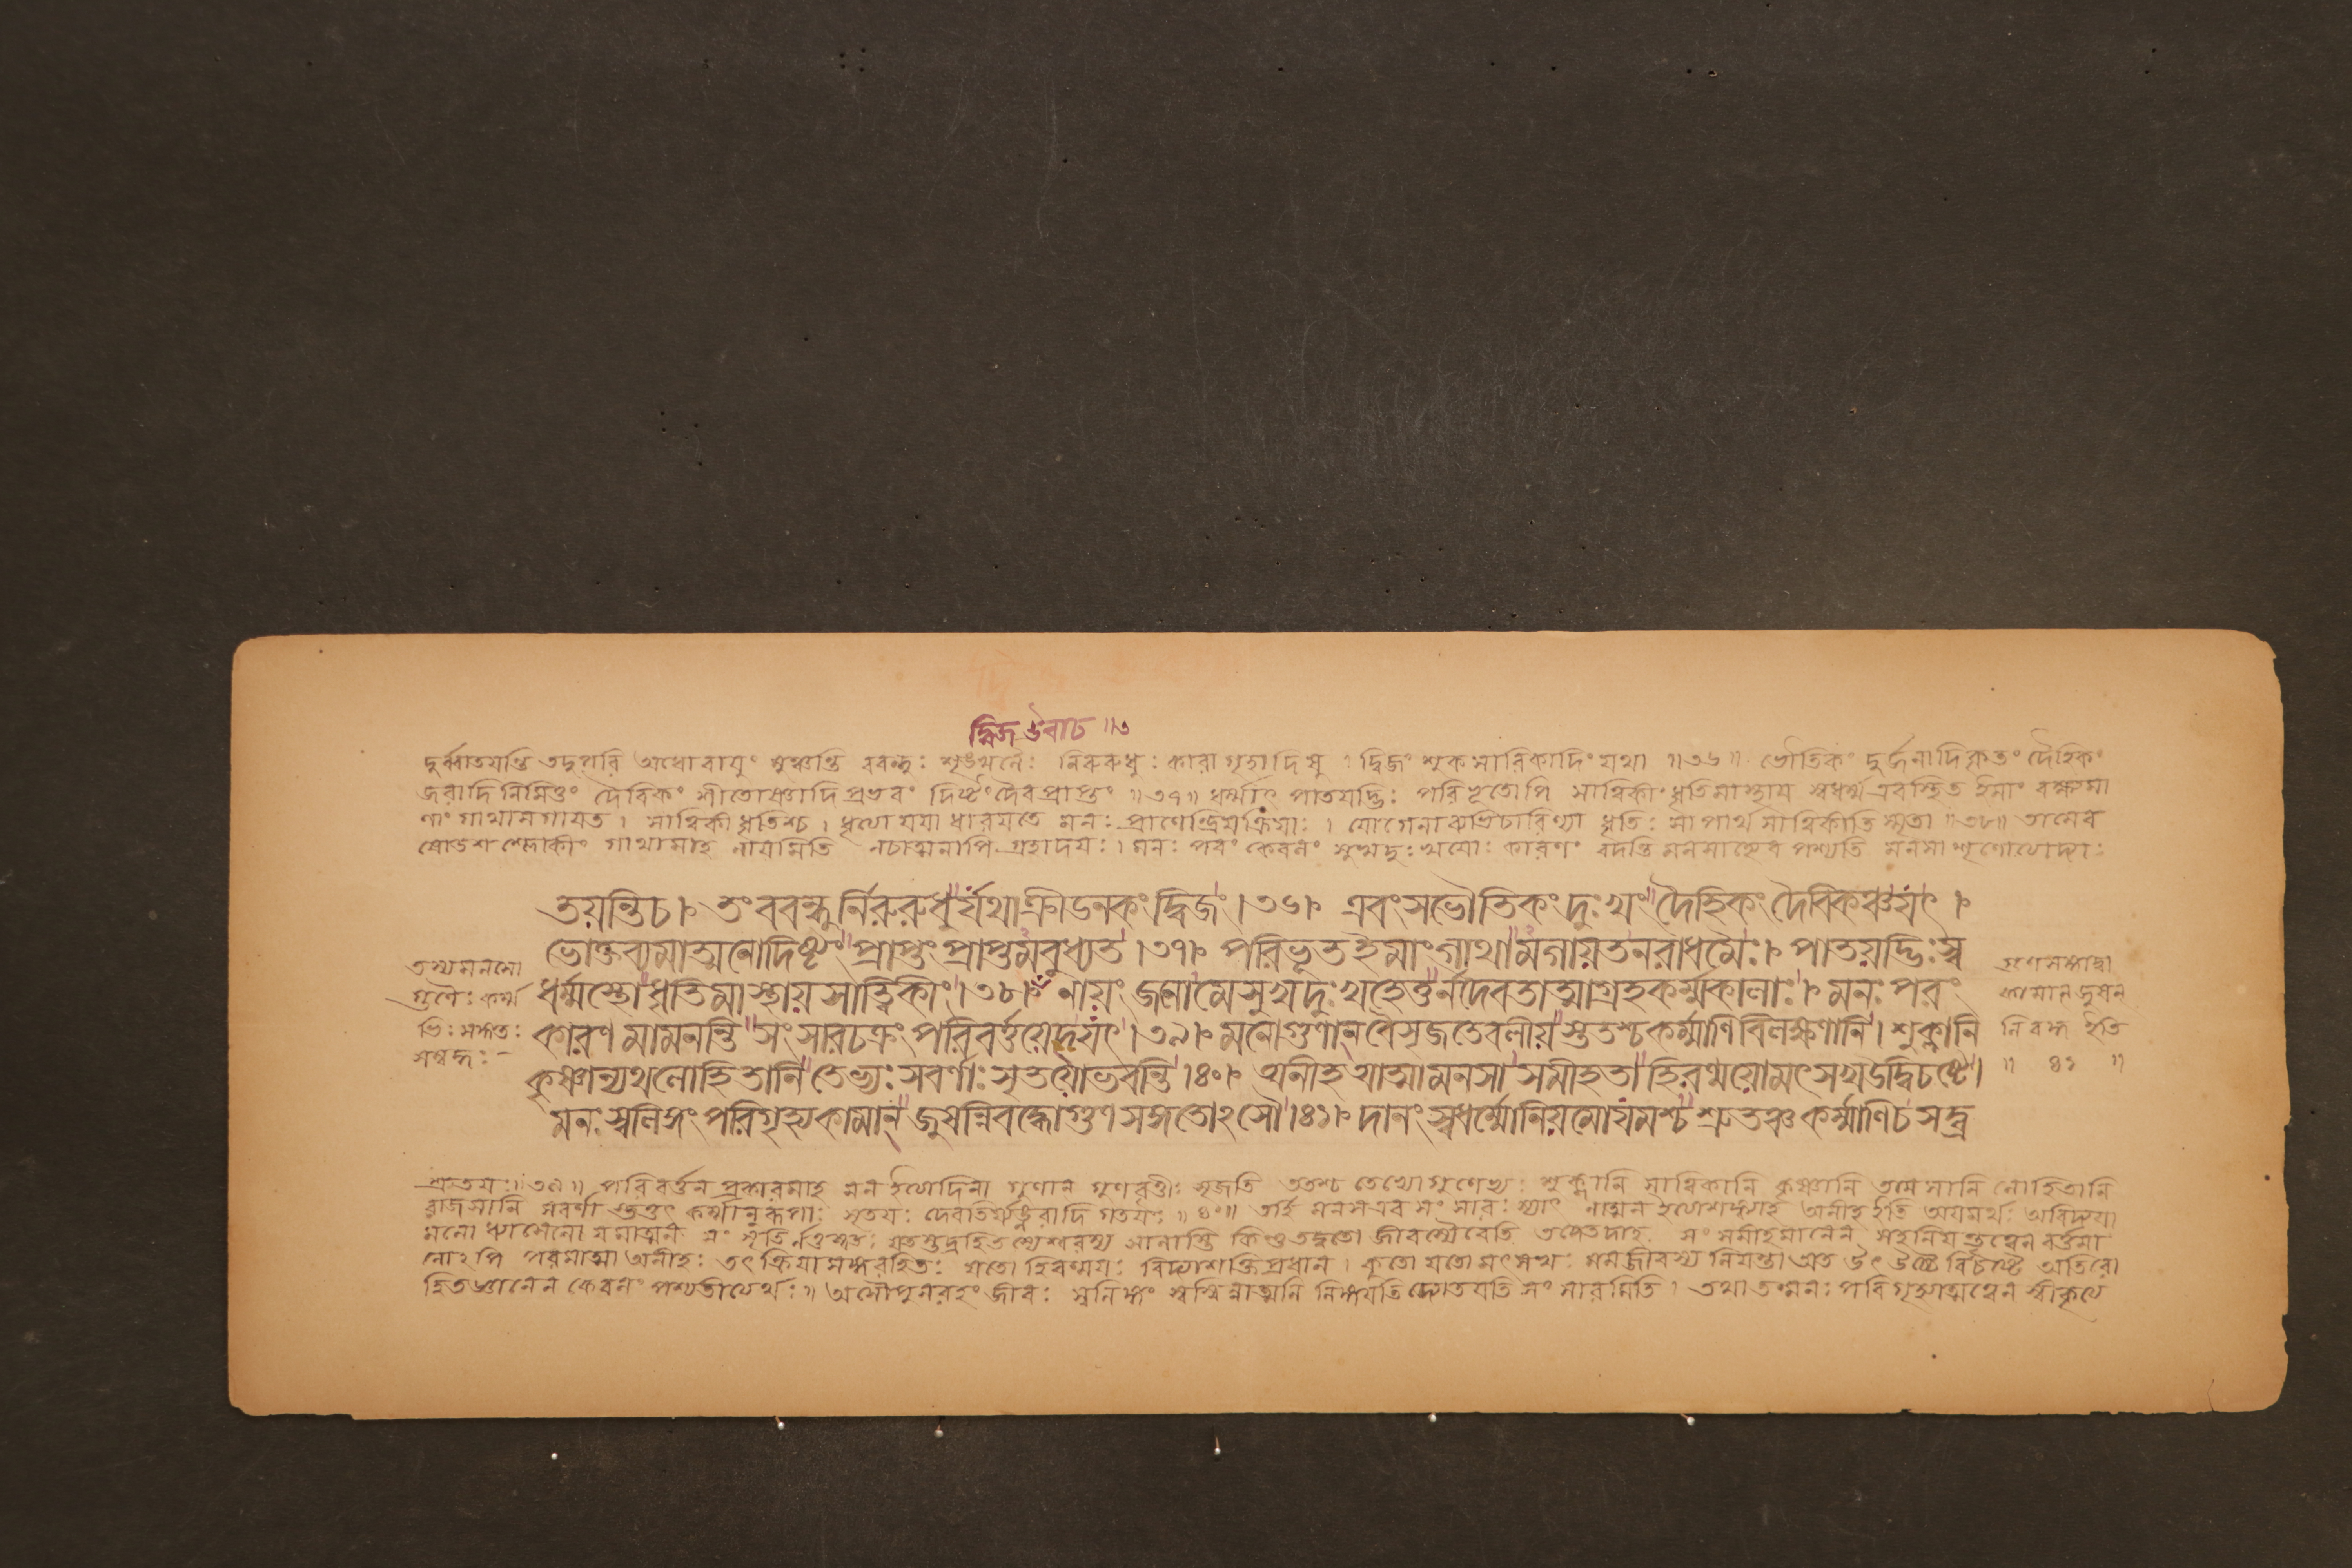 দ্বিজ উবাচ ॥৩
দুর্ব্বাতযন্তি তদুপরি অধোবাযুং মুঞ্চন্তি ববন্ধুঃ শৃঙ্খলৈঃ নিরুরুধুঃ কারাগৃহাদিষু । দ্বিজং শুকসারিকাদিং যথা ॥৩৬॥ ভৌতিকং দুর্জনাদিকৃতং দৈহিকং
জরাদিনিমিত্তং দৈবিকং শীতোষ্ণাদিপ্রভবং দিষ্টং দৈবপ্রাপ্তং ॥৩৭॥ ধর্ম্মাৎ পাতযদ্ভিঃ পরিভূতোপি সাত্বিকীং ধৃতিমাস্থায স্বধর্ম্ম এবস্থিত ইমাং বক্ষ্যমা
ণাং গাথামগাযত । সাত্বিকী ধৃতিশ্চ । ধৃত্যা যযা ধারযতে মনঃ প্রাণেন্দ্রিযক্রিযাঃ । যোগেনাব্যভিচারিণ্যা ধৃতিঃ সা পার্থ সাত্বিকীতি স্মৃতা ॥৩৮॥ তামেব
ষোডশশ্লোকীং গাথামাহ নাযমিতি নচাত্মনাপি গ্রহাদযঃ । মনঃ পরং কেবলং সুখদুঃখযোঃ কারণং বদন্তি মনসাহ্যেব পশ্যতি মনসা শৃণোত্যেদ্যাঃ
তয়ন্তিচ । তং ববন্ধুর্নিরুরুধুর্যথাক্রীডনকং দ্বিজং ।৩৬। এবং সভৌতিকং দুঃখং দৈহিকং দৈবিকঞ্চযৎ ।
ভোক্তব্যমাত্মনোদিষ্টং প্রাপ্তং প্রাপ্তমবুধ্যত ।৩৭। পরিভূত ইমাং গাথামগায়তনরাধমৈঃ । পাতয়দ্ভিঃ স্ব
ধর্ম্মস্থো ধৃতিমাস্থায় সাত্ত্বিকীং ।৩৮। নায়ং জনোমেসুখদুঃখহেতুর্নদেবতাত্মাগ্রহকর্ম্মকালাঃ । মনঃ পরং
কারণমামনন্তি সংসারচক্রং পরিবর্ত্তয়েদ্যৎ ।৩৯। মনোগুণান্ বৈসৃজতেবলীয়স্ততশ্চকর্ম্মাণিবিলক্ষণানি । শুক্লানি
কৃষ্ণান্যথলোহিতানি তেভ্যঃ সবর্ণাঃ সৃতয়োভবন্তি ।৪০। অনীহ আত্মামনসা সমীহতা হিরণ্ময়োমৎসখউদ্বিচষ্টে ।
মনঃ স্বলিঙ্গং পরিগৃহ্যকামান্ জুষন্নিবদ্ধোগুণসঙ্গতোঽসৌ ।৪১। দানং স্বধর্ম্মোনিয়মোযমশ্চ শ্রুতঞ্চকর্ম্মাণিচ সদ্ব্র
তস্যমনসো
গুণৈঃ কর্ম্ম
ভিঃ সঙ্গতঃ
সম্বদ্ধঃ –
গুণেসঙ্গাদ্বা
কামান্ জুষন্
নিবদ্ধ ইতি
॥ ৪১ ॥
শ্রুতযঃ ॥৩৯॥ পরিবর্ত্তন প্রকারমাহ মন ইত্যাদিনা গুণান্ গুণবৃত্তীঃ সৃজতি ততশ্চ তেভ্যোগুণেভ্যঃ শুক্লানি সাত্বিকানি কৃষ্ণানি তামসানি লোহিতানি
রাজসানি সবর্ণা স্তত্তৎ কর্ম্মানুরূপাঃ সৃতযঃ দেবতির্য্যঙ্নরাদি গতযঃ ॥৪০॥ তর্হি মনসএব সংসারঃ স্যাৎ নাত্মন ইত্যাশঙ্ক্যাহ অনীহ ইতি অযমর্থঃ অবিদ্যযা
মনোধ্যাসেনো যমাত্মনঃ সংসৃতির্নতুস্বতঃ যতস্তদ্রহিতস্যেশ্বরস্য সানাস্তি কিন্তুতদ্বতো জীবস্যৈবেতি তদেতদাহ সংসমীহমানেন মহনিযন্তৃত্বেন বর্ত্তমা
নোঽপি পরমাত্মা অনীহঃ তৎক্রিযাসঙ্গরহিতঃ যতো হিরণ্ময়ঃ বিদ্যাশক্তিপ্রধান । কুতো যতো মৎসখঃ মমজীবস্য নিযন্তা অত উৎ উচ্চৈ র্বিচষ্টে অতিরো
হিতজ্ঞানেন কেবলং পশ্যতীত্যর্থঃ ॥ অসৌপুনরহং জীবঃ স্বলিঙ্গং স্বস্মিন্নাত্মনি লিঙ্গযতি দ্যোতযতি সংসারমিতি । তথা তন্মনঃ পরিগৃহ্যাত্মত্বেন স্বীকৃত্য